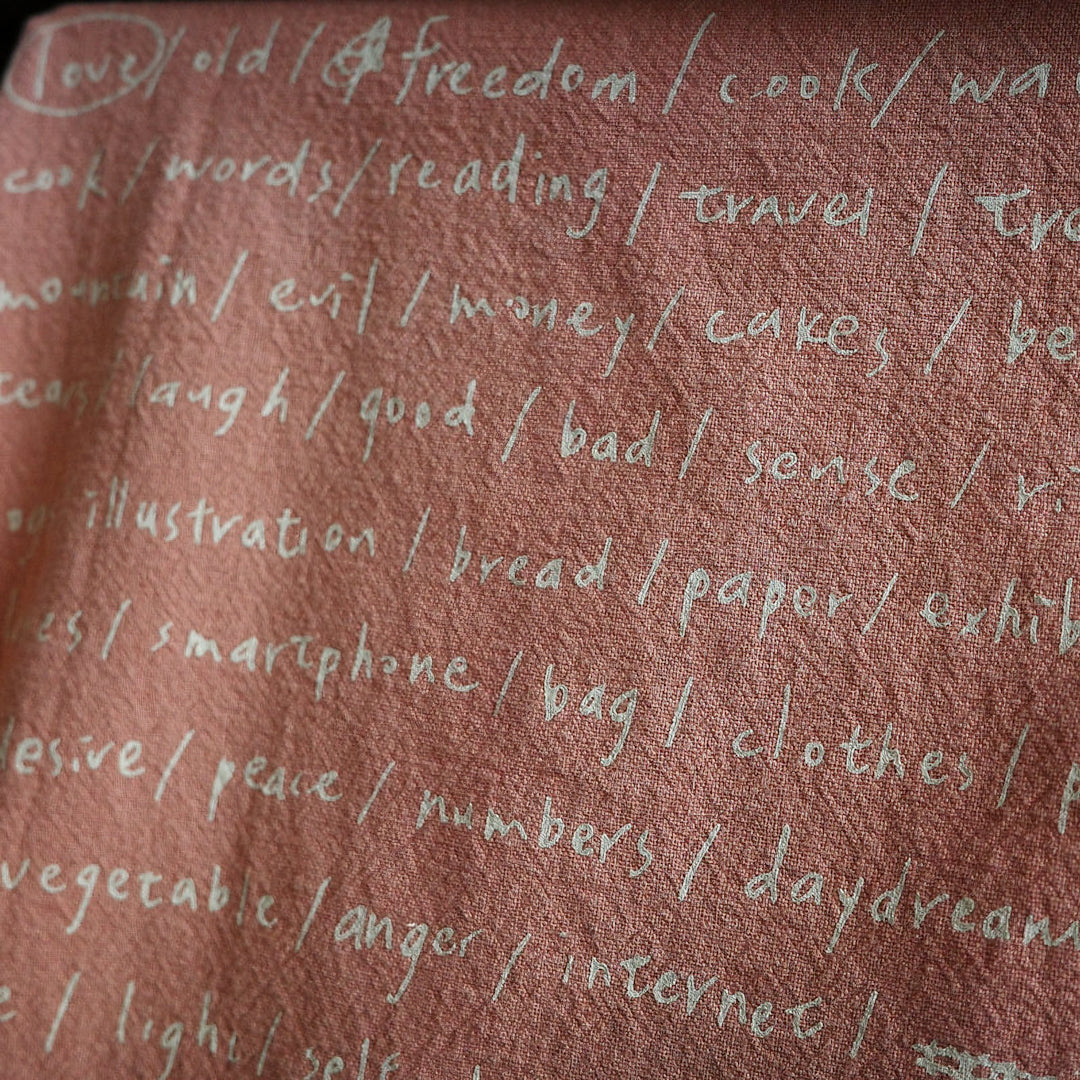 love / old / freedom / cook / wa
cook / words / reading / travel / tra
mountain / evil / money / cakes / be
tears / laugh / good / bad / sense / ri
illustration / bread / paper / exhib
hes / smartphone / bag / clothes / p
desire / peace / numbers / daydream
vegetable / anger / internet /
e / light / self